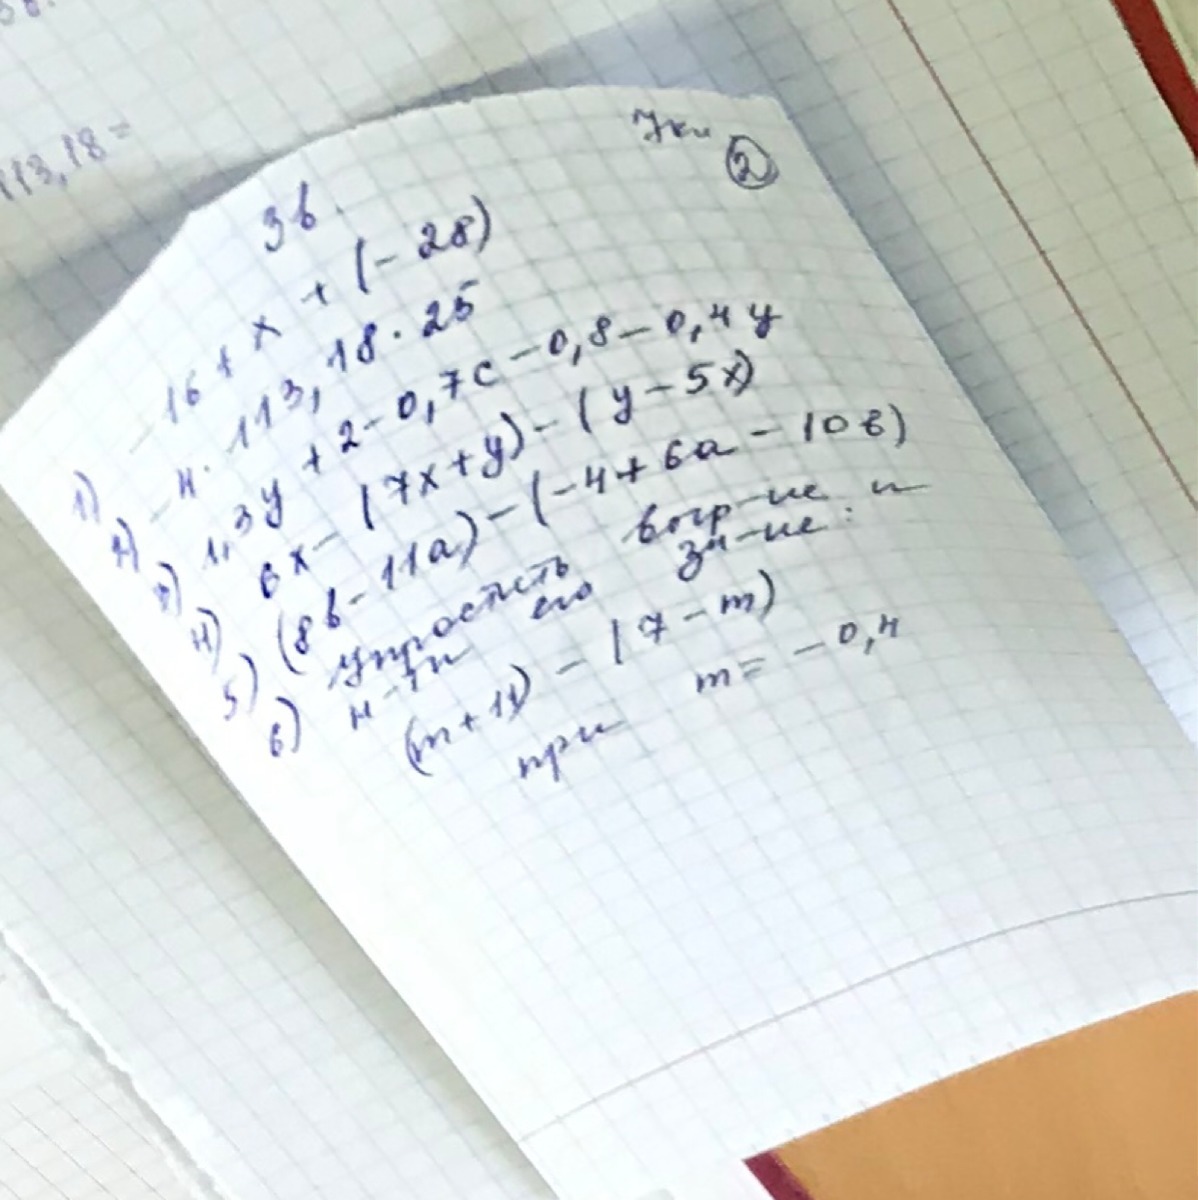 113,18=
7 кл
②
3в.
1) -16+x+(-28)
2) -4·113,18·25
3) 1,3y+2-0,7c-0,8-0,4y
4) 6x-(7x+y)-(y-5x)
5) (8в-11a)-(-4+6a-10в)
6) упростить выр-ие и
н-ти его зн-ие:
(m+11)-(7-m)
при m=-0,4